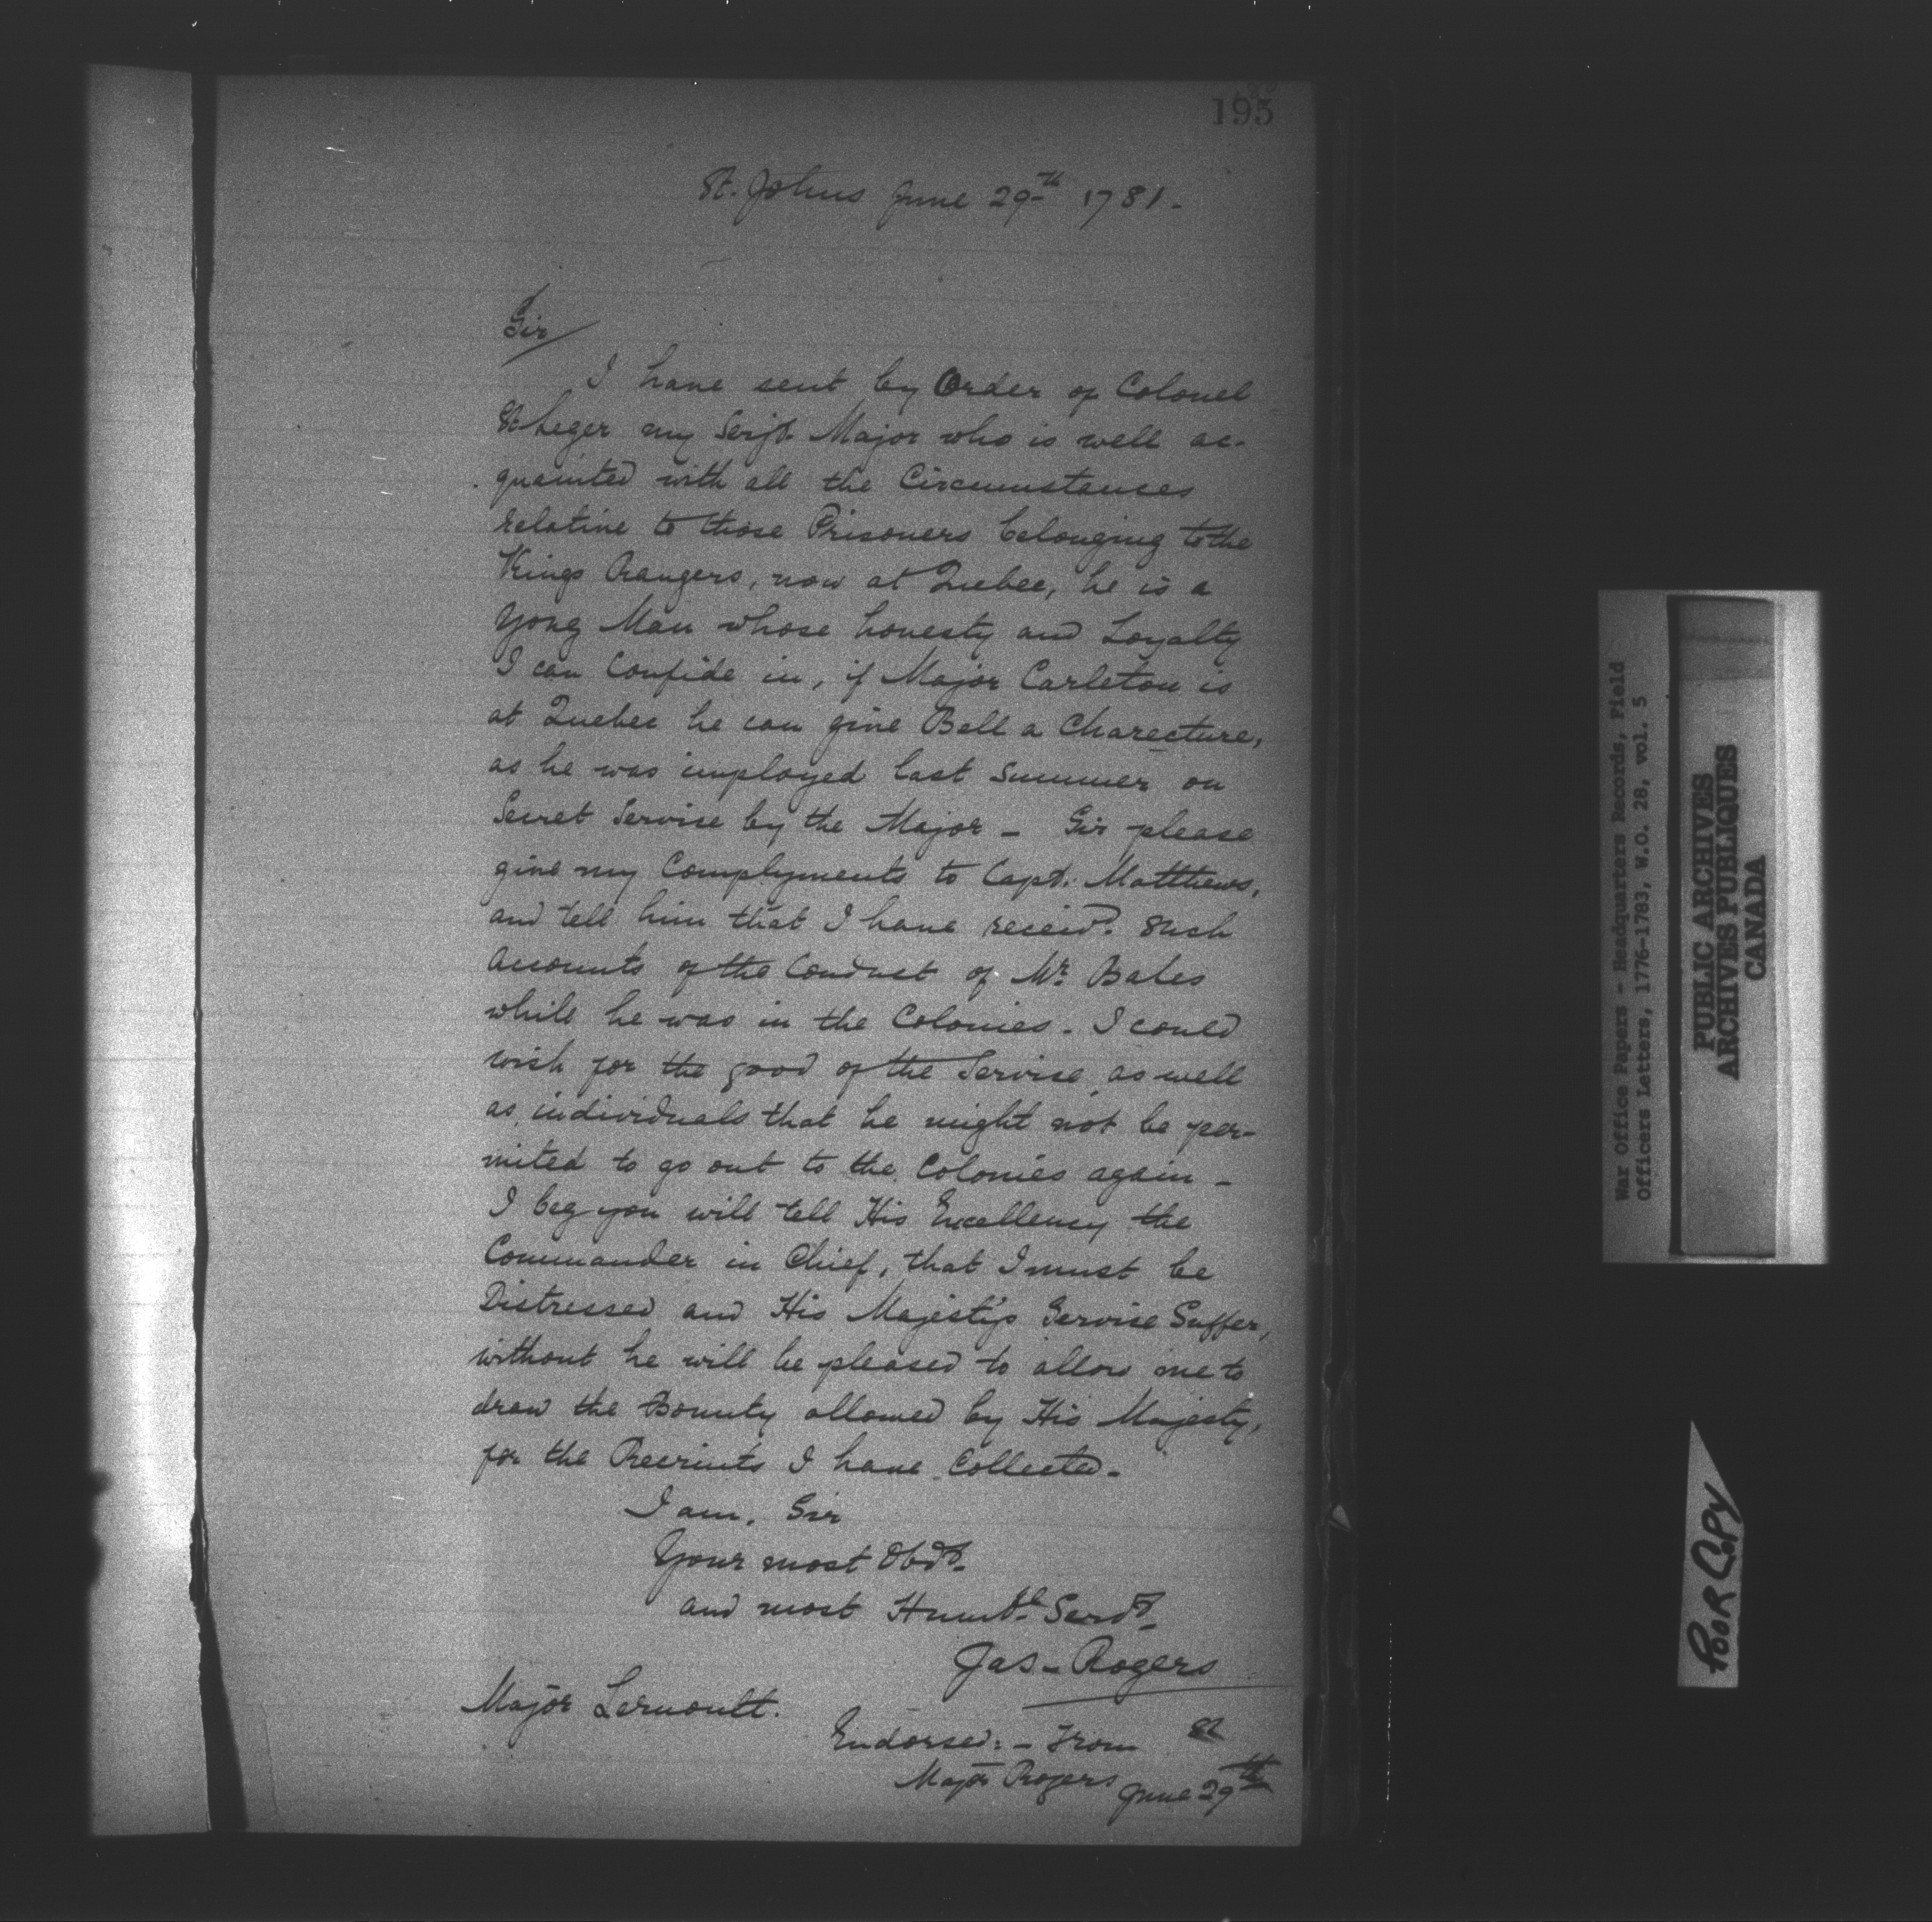 195
St. Johns June 29th 1781.
Sir
I have sent by Order of Colonel
St Leger my Serjt. Major who is well ac-
quainted with all the Circumstances
relative to those Prisoners belonging to the
Kings Rangers, now at Quebec, he is a
Yong Man whose honesty and Loyalty
I can Confide in, if Major Carleton is
at Quebec he can give Bell a Charecture,
as he was imployed last Summer on
Secret Servise by the Major - Sir please
give my Complyments to Capt. Matthews,
and tell him that I have receivd. Such
Accounts of the Conduct of Mr. Bales
while he was in the Colonies. I could
wish for the good of the Servise as well
as individuals that he might not be per-
mited to go out to the Colonies again -
I beg you will tell His Excellency the
Commander in Chief, that I must be
Distressed and His Majesty's Servise Suffer,
without he will be pleased to allow me to
draw the Bounty allowed by His Majesty,
for the Recruits I have Collected.
I am, Sir
Your most Obdt.
and most Humbl Servt.
Jas. Rogers
Major Lernoult.
Endorsed: - From
Major Rogers June 29th
War Office Papers - Headquarters Records, Field
Officers Letters, 1776-1783, W.O. 28, vol. 5
PUBLIC ARCHIVES
ARCHIVES PUBLIQUES
CANADA
POOR COPY